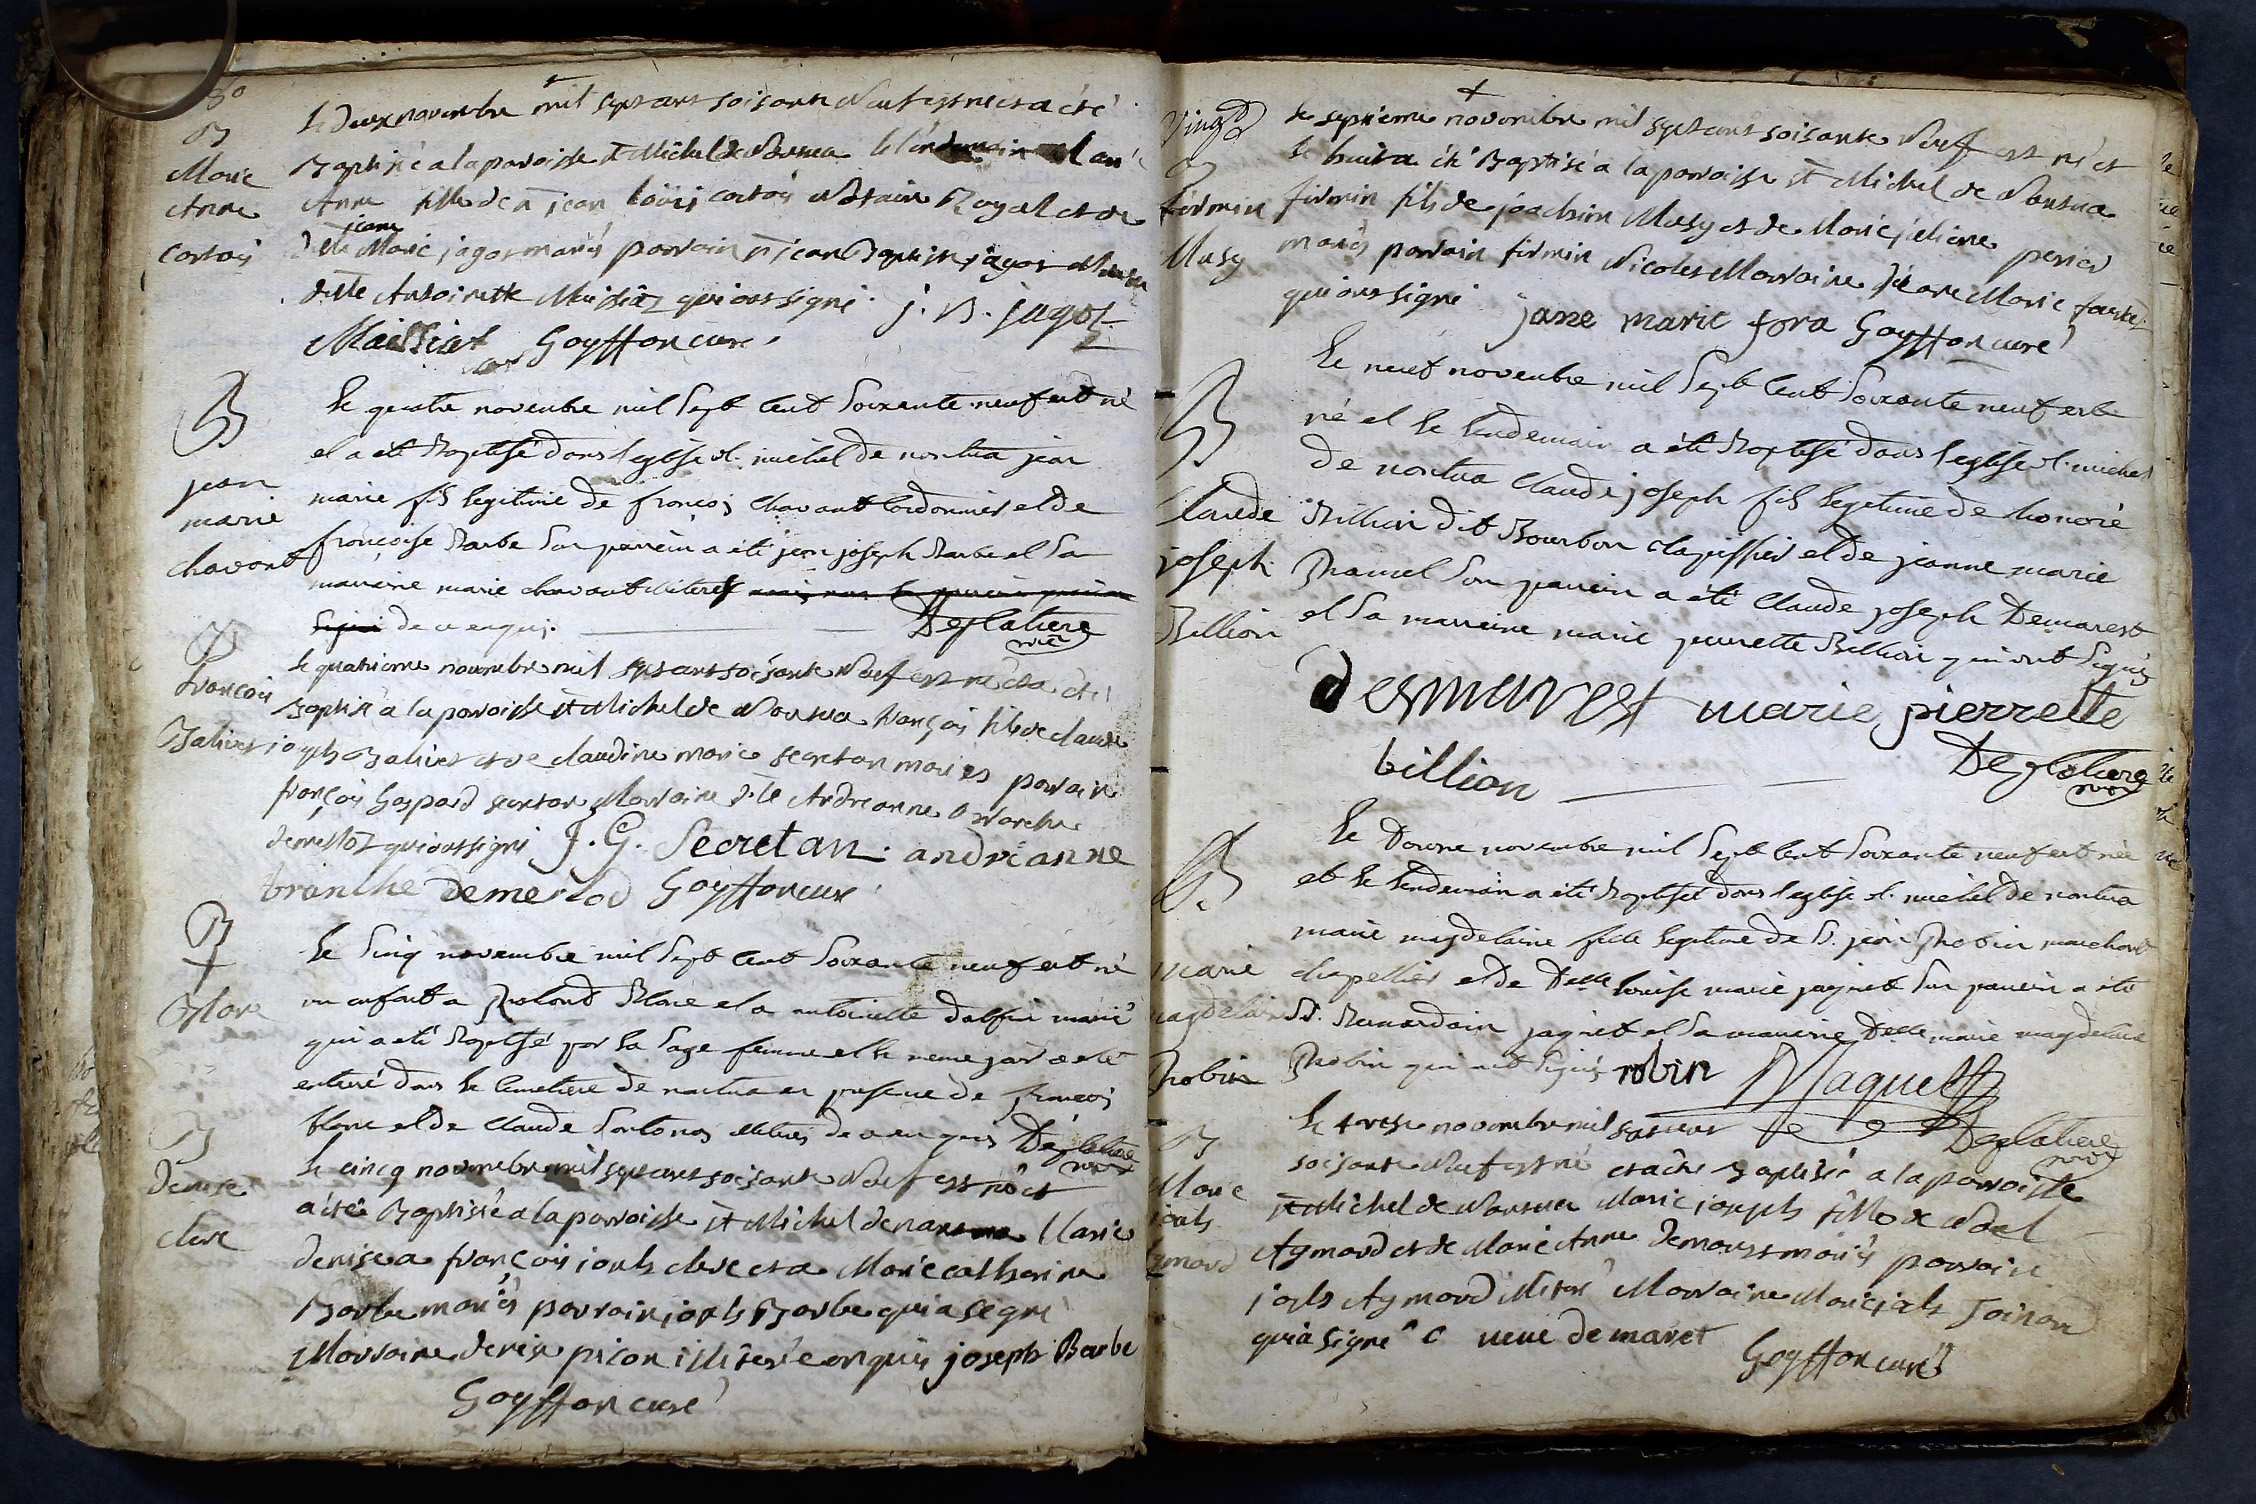 B
Marie
Anne
cortois
le deux novembre mil sept cent soisante Neuf est née et a été
Baptisée a la paroisse St Michel de Nantua le lendemain
Anne fille de jean louis cortois Notaire Royal et de
jeane
Marie jagot mariés parrain jean Baptiste jagot
Antoinette qui ont signé. j. B. jagot
Mailliat Goyffon curé
B
jean
marie
chavant
Le quatre novembre mil Sept Cent Soixante neuf est né
et a eté Baptisé dans l'eglise st. michel de nantua jean
marie fils legitime de françois Chavant Cordonnier et de
françoise Barbe Son parrein a été jean joseph Barbe et Sa
marreine marie chavant illiteres
de ce enquis. Deglatiere
vic
B
françois
Baliver
le quatrieme novembre mil sept cent soisante Neuf est né et a été
Baptisé a la paroisse St Michel de Nantua françois fils de claude
joseph Baliver et de claudine marie secretan mariés parrain
françois Gaspard secretan Marraine Dlle Andreanne
qui ont signé F. G. Secretan. andréanne
branche demerloD Goyffon curé
B
Blanc
Le Sinq novembre mil Sept Cent Soixante neuf est né
un enfant a Roland Blanc et a antoinette dalfin mariés
qui a eté Baptisé par la Sage femme et le meme jour a eté
enterré dans le Cimetiere de nantua en presence de françois
blanc et de Claude illiteres de ce enquis Deglatiere
vic
B
Denise
clerc
le cinq novembre mil sept cent soisante Neuf est née et
a été Baptisée a la paroisse St Michel de Marie
denise a françois joseph clerc et a Marie catherine
Barbe mariés parrain joseph Barbe qui a signé
Marraine denise picon illiterée enquis joseph Barbe
Goyffon curé
B
firmin
Musy
le septieme novembre mil sept cent soisante Neuf est né et
le huit a été Baptisé a la paroisse St Michel de Nantua
firmin fils de joachim Musy et de Marie
mariés parrain firmin Nicolet Marraine jeane Marie
qui ont signé jane marie fora Goyffon curé
B
Claude
joseph
Billion
Le neuf novembre mil Sept Cent Soixante neuf est
né et le lendemain a été Baptisé dans l'eglise st. michel
de nantua Claude joseph fils legitime de honoré
Billion dit Bourbon et de jeanne marie
Son parrein a été Claude joseph Demarest
et Sa marreine marie pierrette Billion qui ont Signés
desmarest marie pierrette
billion Deglatiere
vic
B
marie
magdelaine
Robin
Le Douze novembre mil Sept Cent Soixante neuf est née
et le lendemain a été Baptisée dans l'eglise st. michel de nantua
marie magdelaine fille legitime de S. jean Robin marchand
chapellier et de Delle louise marie jagnet Son parrein a été
S. Bernardain jagnet et Sa marreine Delle marie magdelaine
Robin qui ont Signés robin
Deglatiere
vic
B
Marie
joseph
Aymard
le treze novembre mil sept cent
soisante Neuf est né et a été Baptisée a la paroisse
St Michel de Nantua Marie joseph fille de Noel
Aymard et de Marie Anne mariés parrain
joseph Aymard illiteré Marraine Marie joseph
qui a signé veue demaret
Goyffon curé